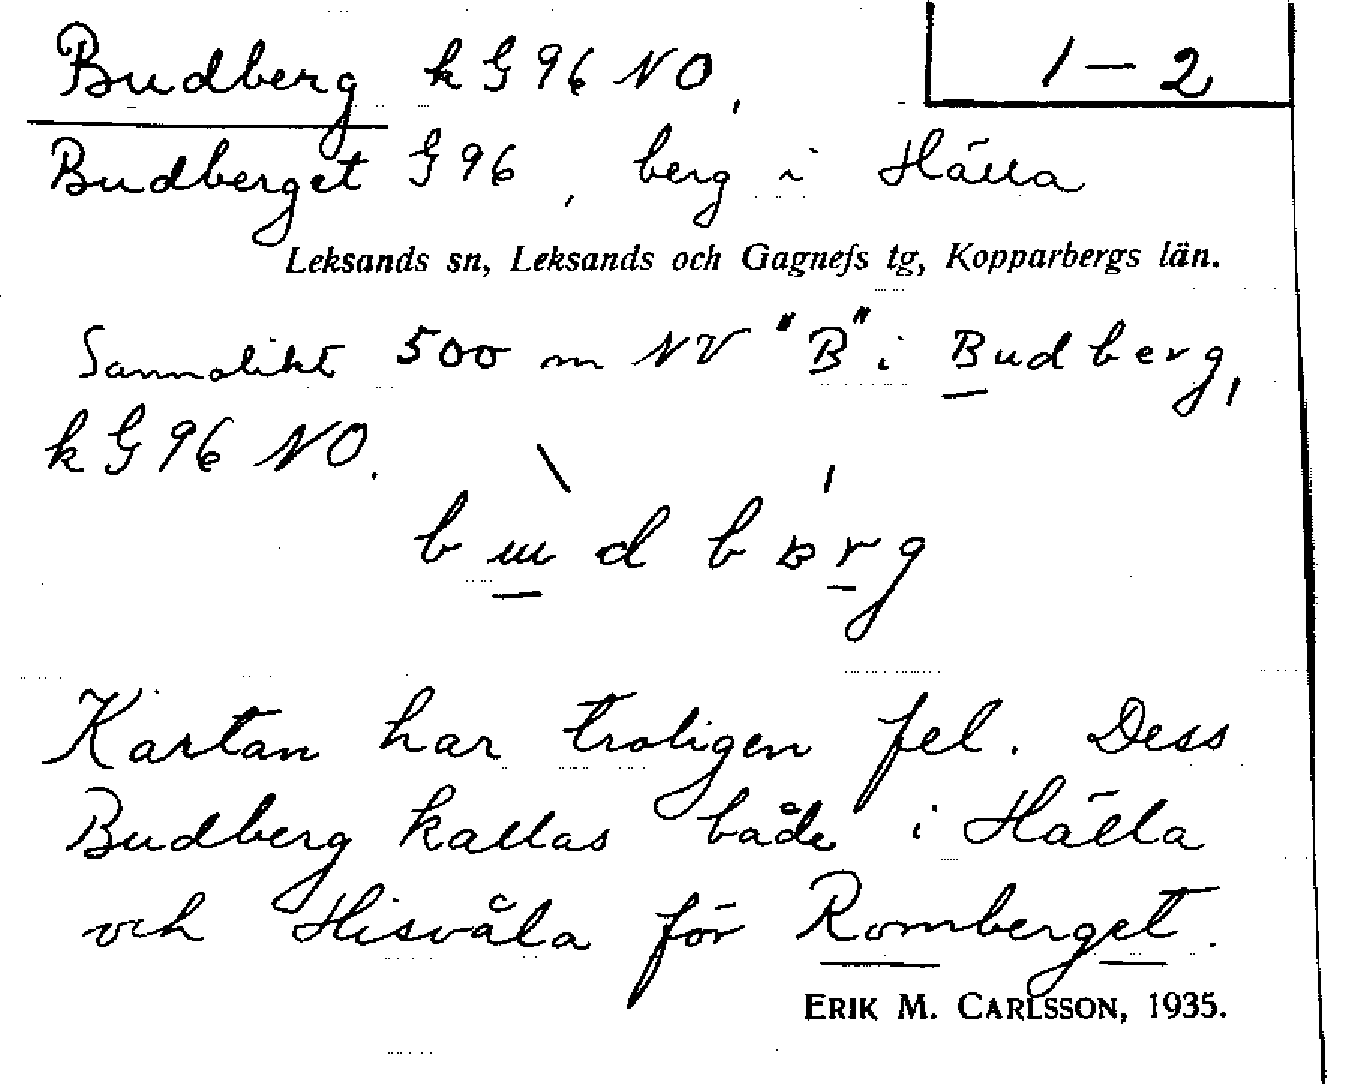 Budberg k G 96 NO,
1 – 2
Budberget G 96, berg i Hälla
Leksands sn, Leksands och Gagnefs tg, Kopparbergs län.
Sannolikt 500 m NV "B" i Budberg,
k G 96 NO.
Kartan har troligen fel. Dess
Budberg kallas både i Hälla
och Hisvåla för Romberget.
ERIK M. CARLSSON, 1935.